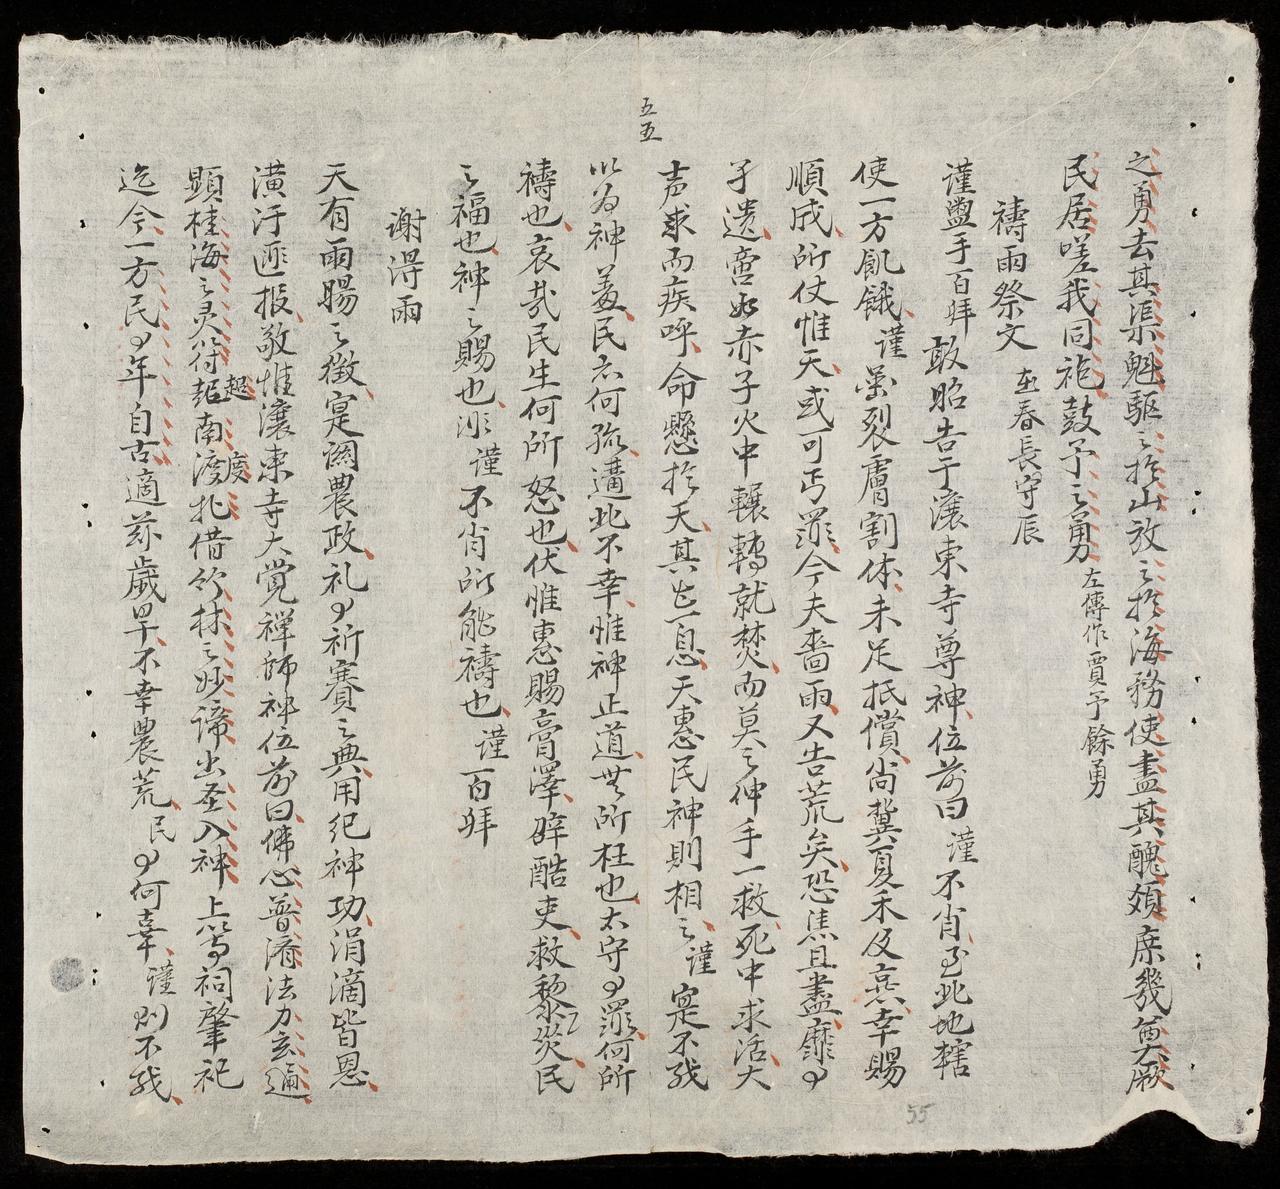 五五
之勇去其渠魁駆之扵山放之扵海務使盡其醜類庶幾奠厥
民居嗟我同袍鼓予之勇 左傳作賈予餘勇
禱雨祭文 在春長守辰
謹盥手百拜敢昭告于瀼東寺尊神位前曰謹不肖至此地轄
使一方飢餓謹虽裂膚割体未足抵償尚冀夏禾及熹幸賜
順成所仗惟天或可丐罪今夫嗇雨又告荒矣恐焦且盡靡〻
孑遺啻如赤子火中輾轉就焚而莫之伸手一救死中求活大
声求而疾呼命懸扵天其迮一息天惠民神則相之謹寔不残
以为神羞民亦何殄遘此不幸惟神正道無所枉也太守〻罪何所
禱也哀㢤民生何所怒也伏惟惠賜膏澤辟酷吏救黎災民
之福也神之賜也非謹不肖所能禱也謹百拜
謝淂雨
天有雨暘之徵寔関農政礼〻祈賽之典用纪神功涓滴皆恩
潢汙匪报敬惟瀼東寺大覺禅師神位前曰佛心普濟法力玄通
顕桂海之灵符超南渡札借竹林之妙諦出圣入神上等祠肇祀
超 度
迄今一方民〻年自古適茲歲旱不幸農荒民〻何辜謹則不残
55